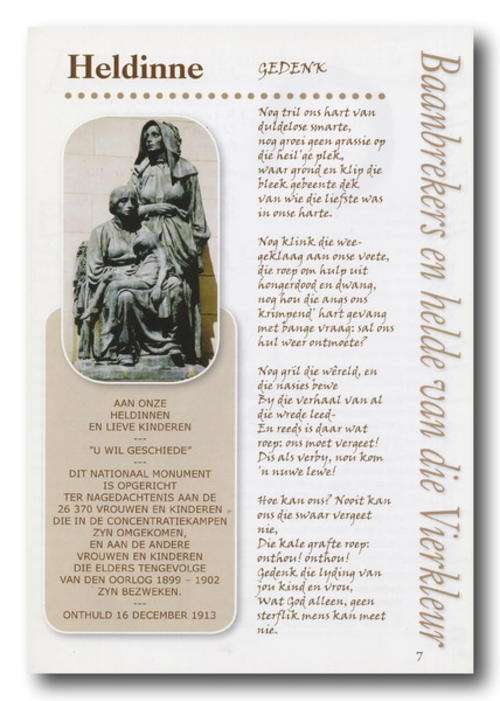 Heldinne
AAN ONZE
HELDINNEN
EN LIEVE KINDEREN
---
"U WIL GESCHIEDE"
---
DIT NATIONAAL MONUMENT
IS OPGERICHT
TER NAGEDACHTENIS AAN DE
26 370 VROUWEN EN KINDEREN
DIE IN DE CONCENTRATIEKAMPEN
ZYN OMGEKOMEN,
EN AAN DE ANDERE
VROUWEN EN KINDEREN
DIE ELDERS TENGEVOLGE
VAN DEN OORLOG 1899 – 1902
ZYN BEZWEKEN.
---
ONTHULD 16 DECEMBER 1913
GEDENK
Nog tril ons hart van
duldelose smarte,
nog groei geen grassie op
die heil'ge plek,
waar grond en klip die
bleek gebeente dek
van wie die liefste was
in onse harte.
Nog klink die wee-
geklaag aan onse voete,
die roep om hulp uit
hongerdood en dwang,
nog hou die angs ons
krimpend' hart gevang
met bange vraag: sal ons
hul weer ontmoete?
Nog gril die wêreld, en
die nasies bewe
By die verhaal van al
die wrede leed-
En reeds is daar wat
roep: ons moet vergeet!
Dis als verby, nou kom
'n nuwe lewe!
Hoe kan ons? Nooit kan
ons die swaar vergeet
nie,
Die kale grafte roep:
onthou! onthou!
Gedenk die lyding van
jou kind en vrou,
Wat God alleen, geen
sterflik mens kan meet
nie.
Baanbrekers en helde van die Vierkleur
7